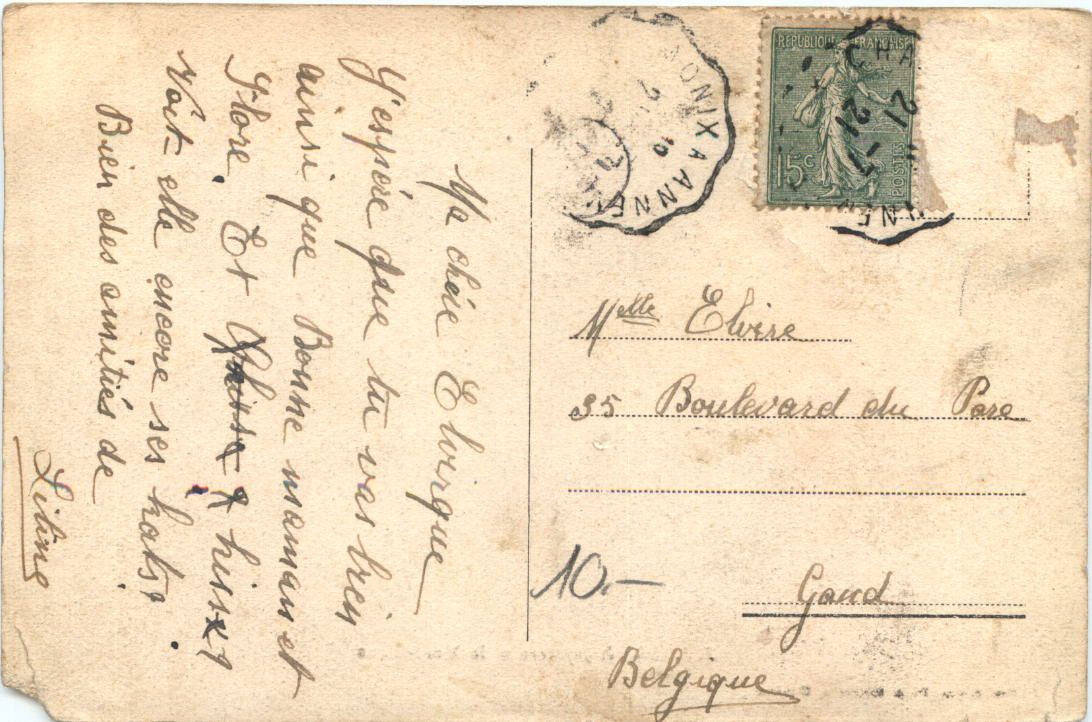 Ma chère Elvirque
J'espère que tu vas bien
ainsi que Bonne maman et
Flore. Et hisse?
Voit elle encore ses hats?
Bien des amitiés de
Liline
MONIX A ANNE
REPUBLIQUE FRANÇAISE
15c
POSTES
CHA
21
21 -7
Melle Elvire
35 Boulevard du Parc
Gand
Belgique
10.-